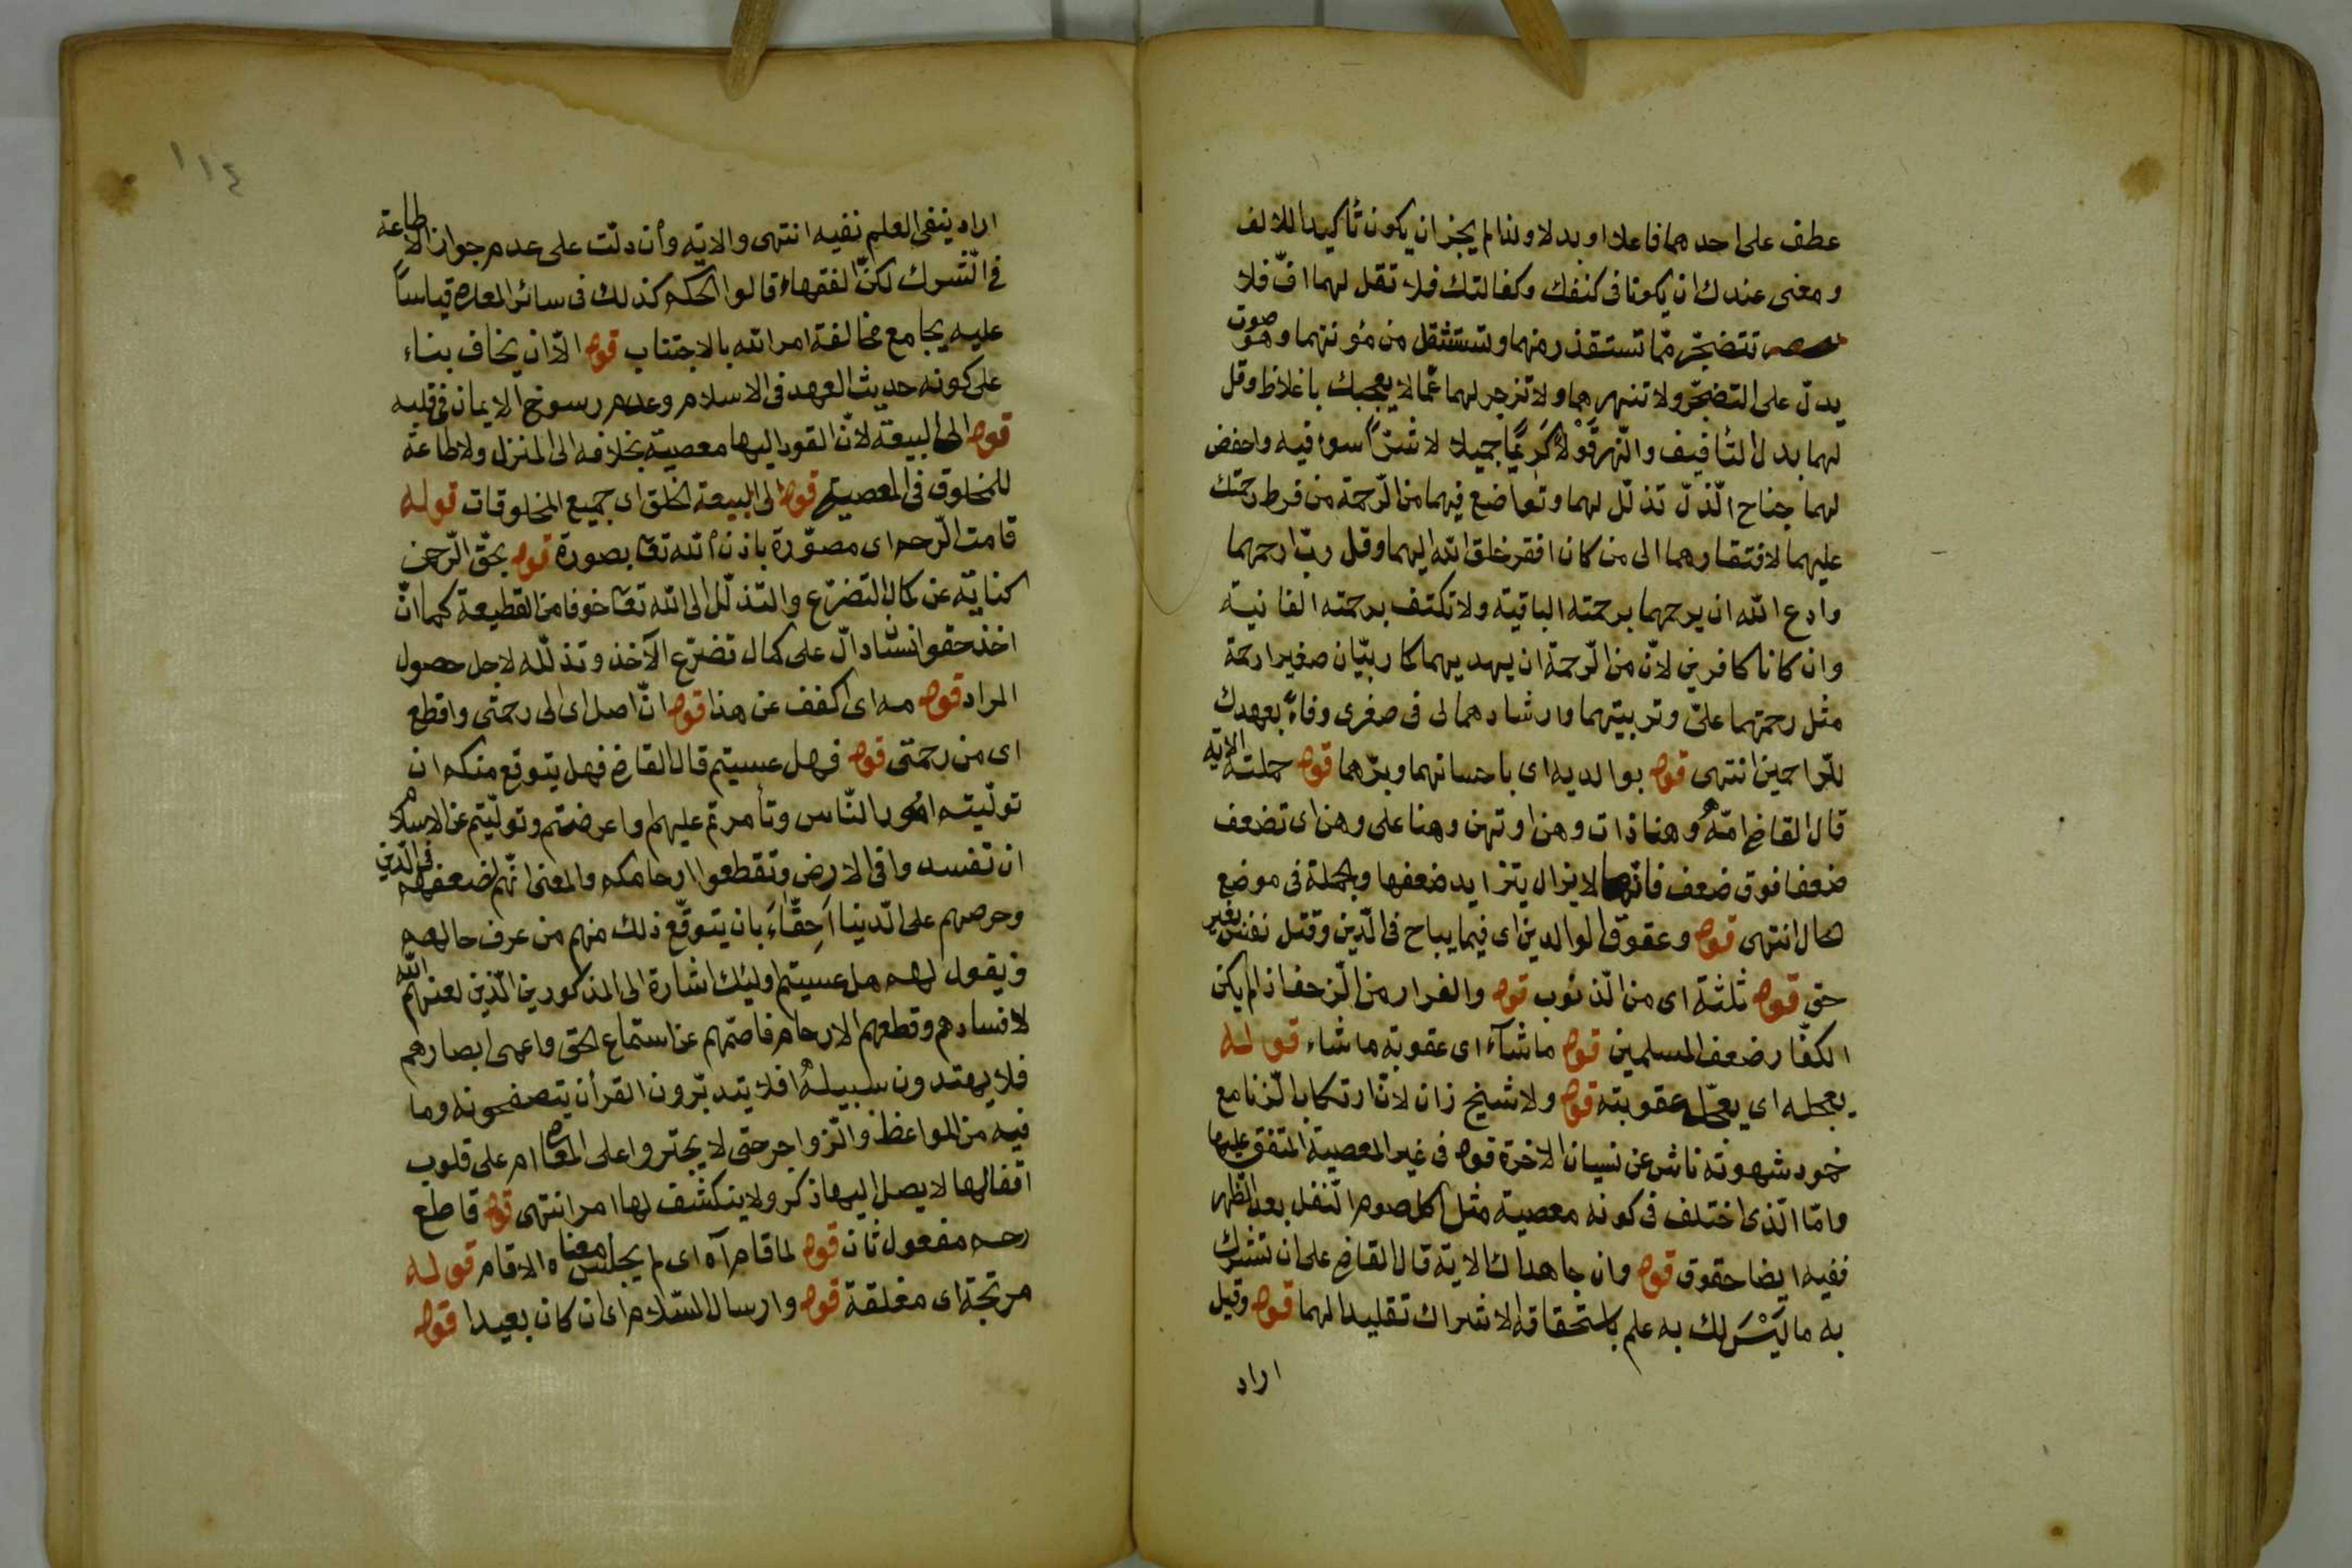 عطف على احدهما فاعلا او بدلا ولذا لم يجز ان يكون تأكيدا للالف
ومعنى عندك ان يكونا فى كنفك وكفالتك فلا تقل لهما افّ فلا
تتضجّر ممّا تستقذر منهما وتستثقل من مؤنتهما وهو صوت
يدلّ على التضجّر ولا تنهرهما ولا تزجرلهما عمّا لا يعجبك باغلاظ وقل
لهما بدل التأفيف والنّهر قَوْلًا كَرِيمًا جميلا لا شرّا سوء فيه واخفض
لهما جناح الذّلّ تذلّل لهما وتواضع فيهما من الرّحمة من فرط رحمتك
عليهما لافتقارهما الى من كان افقر خلق الله اليهما وقل ربّ ارحمهما
وادع الله ان يرحمهما برحمته الباقية ولا تكتف برحمته الفانية
وان كانا كافرين لانّ من الرّحمة ان يهديهما كما ربيّان صغيرا رحمة
مثل رحمتهما علىّ وتربيتهما وارشادهما لى فى صغرى وفاءً بعهدك
للرّاحمين انتهى قوله بوالديه اى باحسانهما وبرّهما قوله حملته الاية
قال القاضى امّهُ وهنا ذات وهن او تهن وهنا على وهن اى تضعف
ضعفا فوق ضعف فانّها لا يزال يتزايد ضعفها والجملة فى موضع
حال انتهى قوله وعقوق الوالدين اى فيما يباح فى الدّين وقتل نفس بغير
حق قوله ثلثة اى من الذّنوب قوله والفرار من الزّحف اذا لم يكن
الكفّار ضعف المسلمين قوله ما شآء اى عقوبة ما شاء قوله
يعجله اى يعجّل عقوبته قوله ولا شيخ زان لانّ ارتكاب الزّنا مع
خمود شهوته ناش عن نسيان الاخرة قوله فى غير المعصية المتفق عليها
وامّا الّذى اختلف فى كونه معصية مثل اكل صوم النّفل بعد الظهر
ففيه ايضا حقوق قوله وان جاهداك الاية قال القاضى على ان تشرك
به ما لَيْسَ لك به علم باستحقاقه الاشراك تقليدا لهما قوله وقيل
اراد
١١٤
اراد بنفى العلم نفيه انتهى والاية وأن دلّت على عدم جواز الاطاعة
فى الشّرك لكنّ الفقهاء قالوا الحكم كذلك فى سائر المعاصى قياساً
عليه بجامع مخالفة امر الله بالاجتناب قوله الّا ان يخاف بناء
على كونه حديث العهد فى الاسلام وعدم رسوخ الايمان فى قلبه
قوله الى البيعة لانّ القود اليها معصية بخلافه الى المنزل ولا طاعة
للمخلوق فى المعصية قوله الى البيعة الخلق اى جميع المخلوقات قوله
قامت الرّحم اى مصوّرة باذن الله تعا بصورة قوله بحقّ الرّحمن
كناية عن كمال التضرّع والتذلّل الى الله تعا خوفا من القطيعة كما انّ
اخذ حقو انسان دالّ على كمال تضرّع الآخذ وتذلّله لاجل حصول
المراد قوله مه اى اكفف عن هذا قوله انّ اصل اى الى رحمتى واقطع
اى من رحمتى قوله فهل عسيتم قال القاضى فهل يتوقع منكم ان
تولّيتم امور النّاس وتأمرتم عليهم واعرضتم وتولّيتم عن الاسلام
ان تفسدوا فى الارض وتقطعوا ارحامكم والمعنى انّهم لضعفهم فى الدّين
وحرصهم على الدّنيا اَحِقّاءَ بان يتوقّع ذلك منهم من عرف حالهم
ويقول لهم هل عسيتم اوليك اشارة الى المذكورين الّذين لعنهم الله
لافسادهم وقطعهم الارحام فاصمّهم عن استماع الحق واعمى ابصارهم
فلا يهتدون سبيلهُ افلا يتدبّرون القرأن يتصفحونه وما
فيه من المواعظ والزّواجر حتى لا يجتروا على المعاصى ام على قلوب
اقفالها لا يصل اليها ذكر ولا ينكشف لها امر انتهى قوله قاطع
رحم مفعول ثان قوله لما قام آه اى لم يجلس معناه الاقام قوله
مرتجة اى مغلقة قوله وارسال السّلام اى ان كان بعيدا قوله